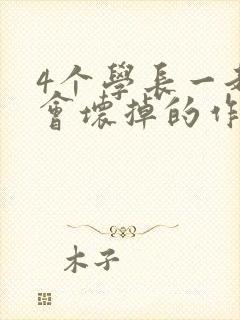 4个學長一
會壞掉的作
木子